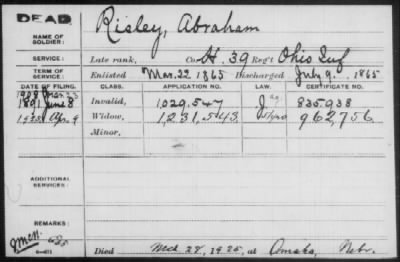 DEAD
NAME OF SOLDIER: Risley, Abraham
SERVICE: Late rank, Co. H. 39 Reg't Ohio Inf
TERM OF SERVICE: Enlisted Mar. 22 1865 Discharged July 9 1865
DATE OF FILING. CLASS. APPLICATION NO. LAW. CERTIFICATE NO.
1891 June 8 Invalid, 1,029.547 835.938
1925 Apr 9 Widow, 1,231,543 962,756
Minor.
ADDITIONAL SERVICES:
REMARKS:
Died Mch 28, 1925, at Omaha, Nebr.